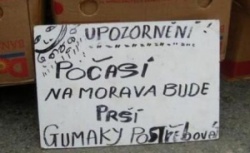 UPOZORNĚNÍ!
POČASÍ
NA MORAVA BUDE
PRŠÍ
GUMAKY